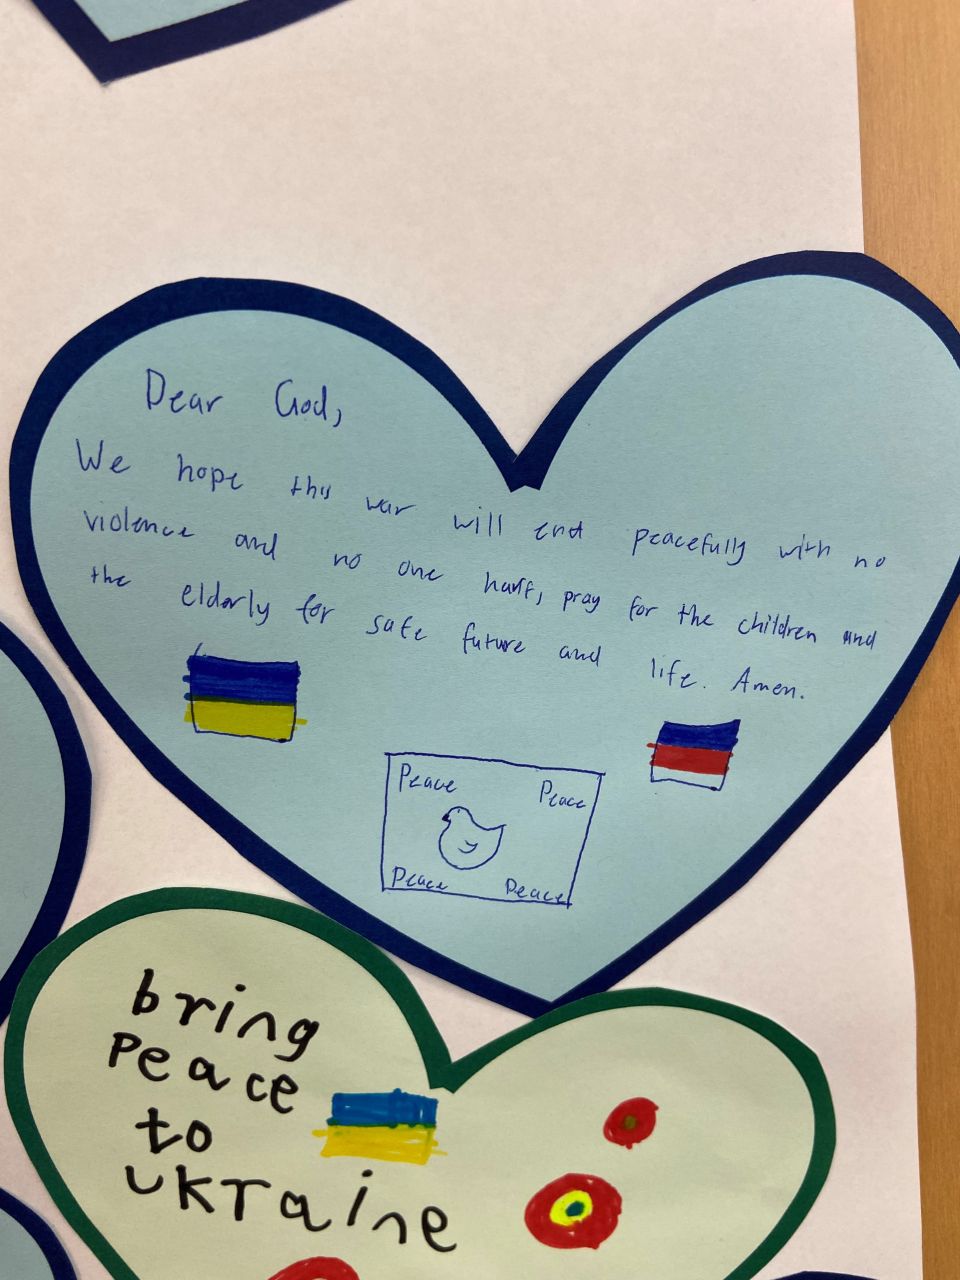 Dear God,
We hope this war will end peacefully with no
violence and no one hurt, pray for the children and
the elderly for safe future and life. Amen.
Peace Peace
Peace Peace
bring
Peace
to
ukraine